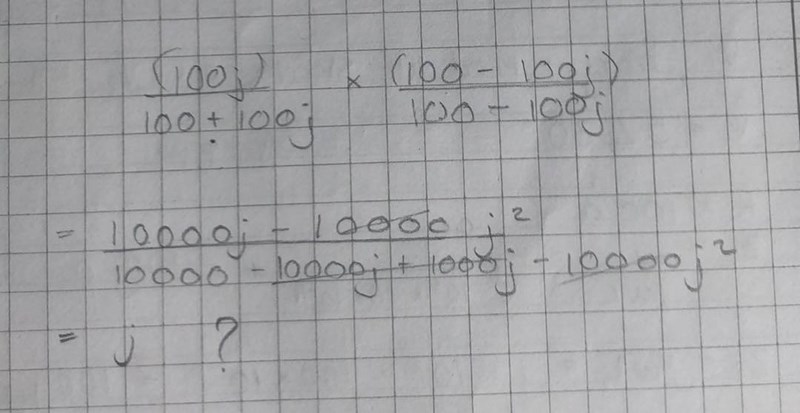 (100j) × (100 - 100j)
100 + 100j 100 - 100j
= 10000j - 10000 j²
10000 - 10000j + 1000j - 10000j²
= j ?